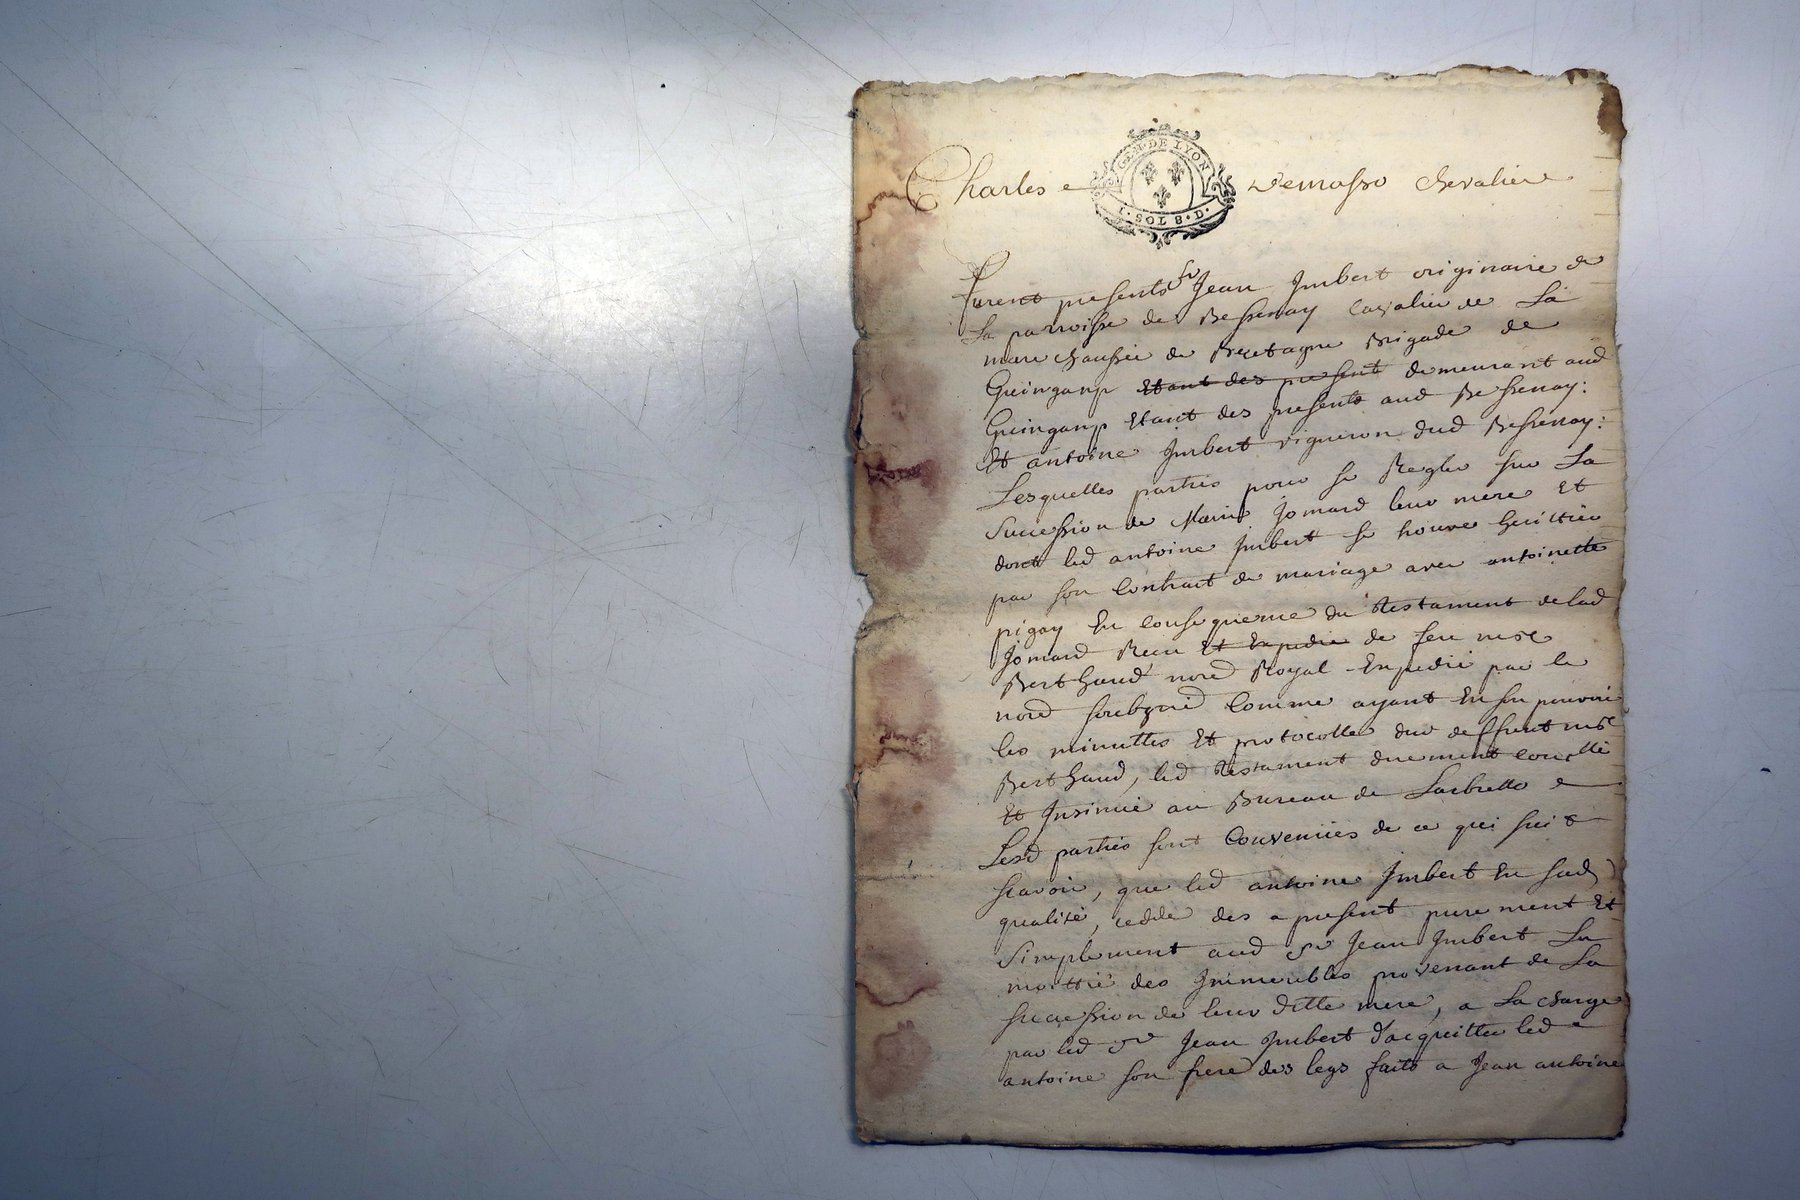 GEN. DE LYON
1. SOL 8. D.
Charles Demasso Chevalier
furent presents sr Jean Jmbert originaire de
La parroisse de Bessenay Cavalier de La
marechaussée de Bretagne Brigade de
Guingamp Etant des present demeurant aud
Guingamp Etant des presents aud Bessenay:
Et antoine Jmbert vigneron dud Bessenay:
Lesquelles parties pour se Regler sur La
Succession de Marie Jomard leur mere Et
dont led antoine Jmbert se trouve heritier
par son Contract de mariage avec antoinette
pigay En Consequence du testament de lad
Jomard Receu Et Expedié de feu me
Berthaud nore Royal Expedié par le
nore soubzné Comme ayant En son pouvoir
les minuttes Et protocolles dud deffunt me
Berthaud, led testament duement Conollé
Et Jnsinué au Bureau de Larbresle
Lesd parties sont Convenües de ce qui suit
scavoir, que led antoine Jmbert En sad
qualité, cedde des a present purement Et
Simplement aud sr Jean Jmbert La
moittié des Jmmeubles provenant de La
succession de leur ditte mere, a La charge
par led sr Jean Jmbert d'acquitter led
antoine son frere des legs faits a Jean antoine